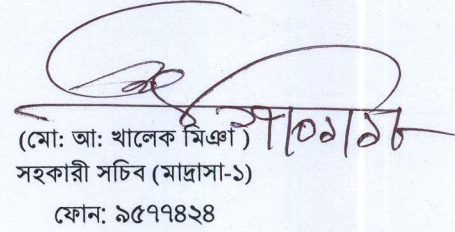 (মো: আ: খালেক মিঞা )
সহকারী সচিব (মাদ্রাসা-১)
ফোন: ৯৫৭৭৪২৪